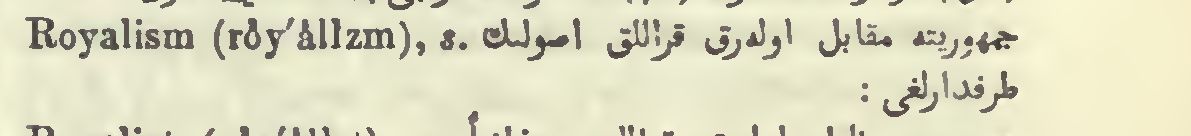 Royalism (rŏy´ălIzm), s. جمهوريته مقابل اولەرق قراللق اصولنك
طرفدارلغى :